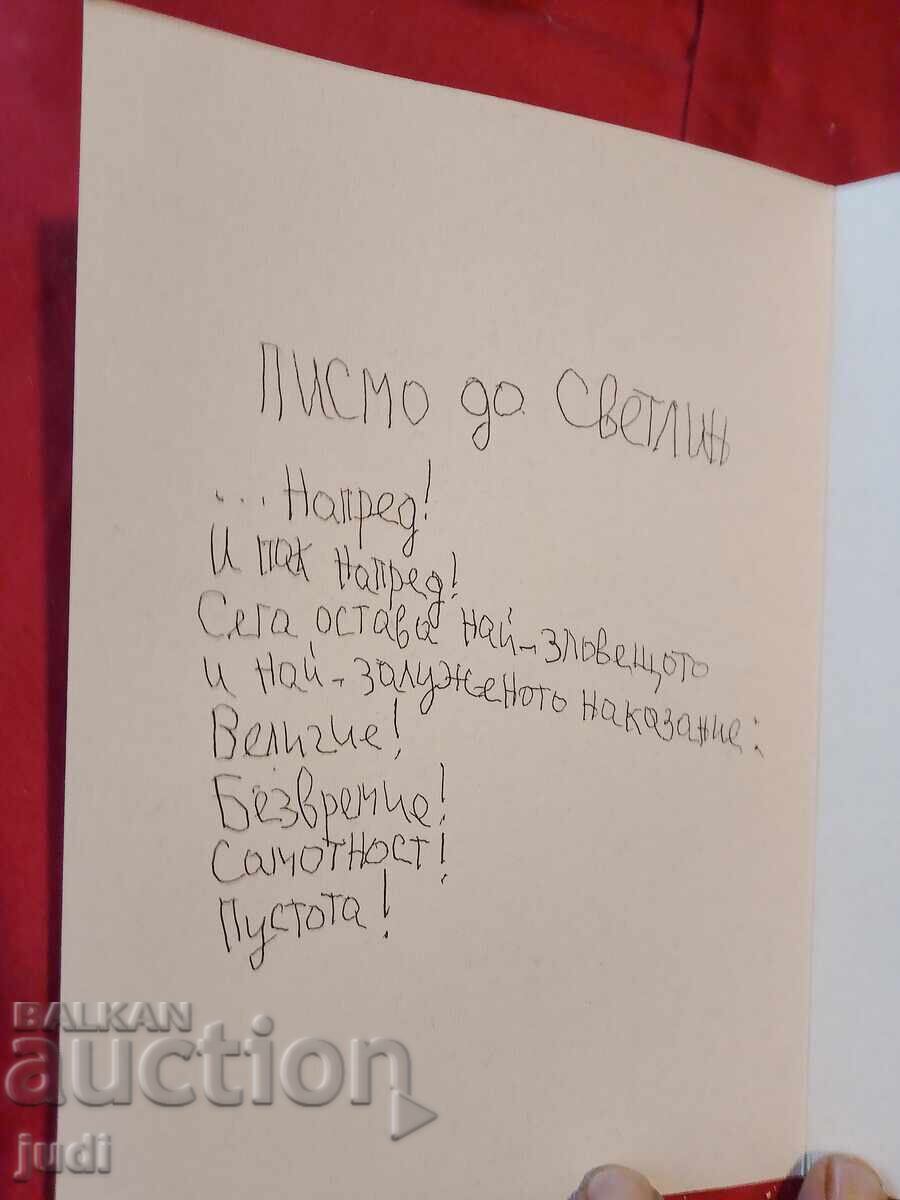 ПИСМО до СВЕТЛИН
... Напред!
И пак напред!
Сега остава най-зловещото
и най-залуженото наказание:
Величие!
Безвремие!
Самотност!
Пустота!
BALKAN
auction
judi